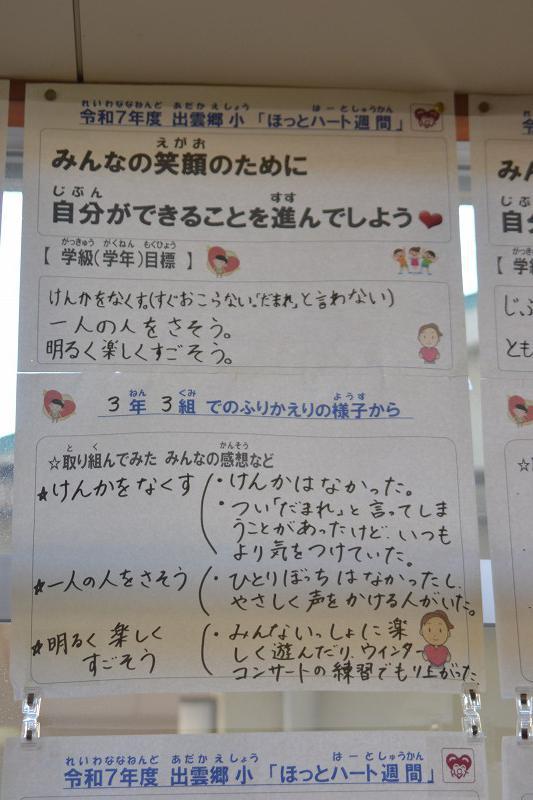 れいわななねんど あだかえしょう はーとしゅうかん
令和7年度 出雲郷小 「ほっとハート週間」
えがお
みんなの笑顔のために
じぶん すす
自分ができることを進んでしよう
がっきゅう がくねん もくひょう
【 学級(学年)目標 】
けんかをなくす(すぐおこらない。「だまれ」と言わない)
一人の人をさそう。
明るく楽しくすごそう。
ねん くみ ようす
3年 3組 でのふりかえりの様子から
とく かんそう
☆取り組んでみた みんなの感想など
☆けんかをなくす
・けんかはなかった。
・つい「だまれ」と言ってしま
うことがあったけど、いつも
より気をつけていた。
☆一人の人をさそう
・ひとりぼっちはなかったし、
やさしく声をかける人がいた。
☆明るく楽しく
すごそう
・みんないっしょに楽
しく遊んだり、ウインター
コンサートの練習でもり上がった
れいわななねんど あだかえしょう はーとしゅうかん
令和7年度 出雲郷小 「ほっとハート週間」
令
みん
じぶ
自分
がっき
【 学級
じぶ
とも